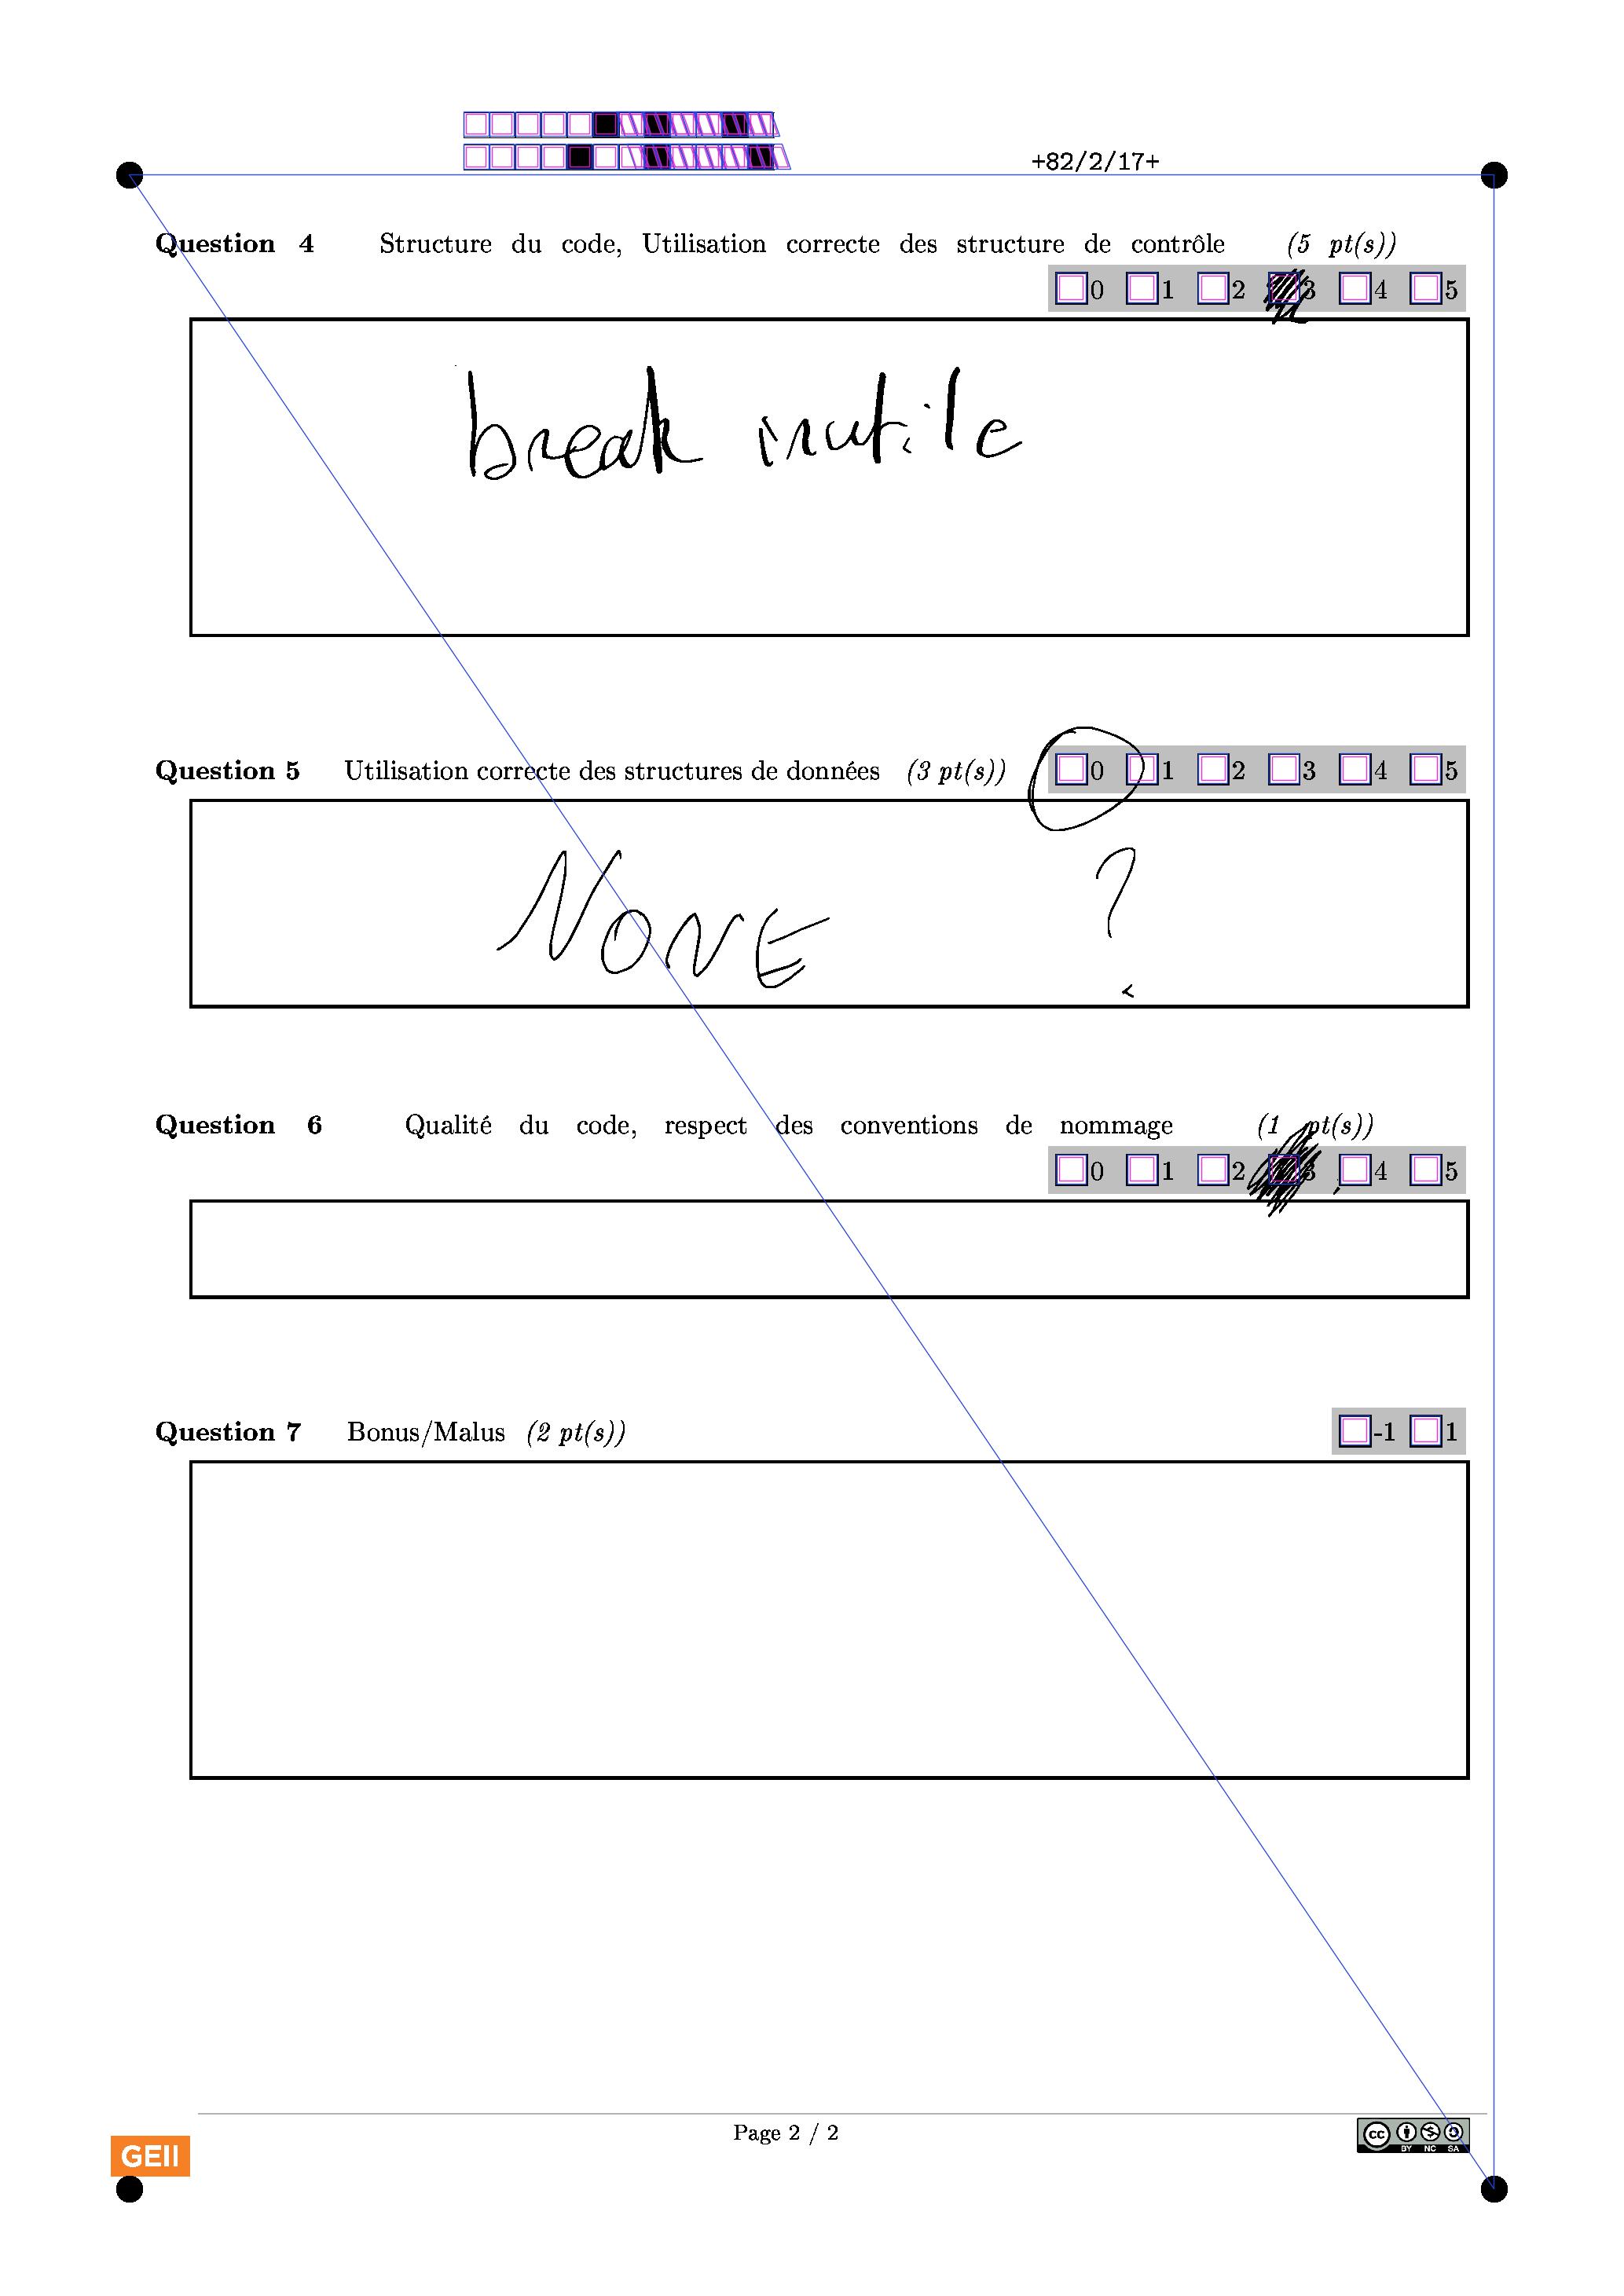 +82/2/17+
Question 4 Structure du code, Utilisation correcte des structure de contrôle (5 pt(s))
0 1 2 3 4 5
break inutile
Question 5 Utilisation correcte des structures de données (3 pt(s)) 0 1 2 3 4 5
NONE ?
Question 6 Qualité du code, respect des conventions de nommage (1 pt(s))
0 1 2 3 4 5
Question 7 Bonus/Malus (2 pt(s)) -1 1
Page 2 / 2
GEII
cc BY NC SA